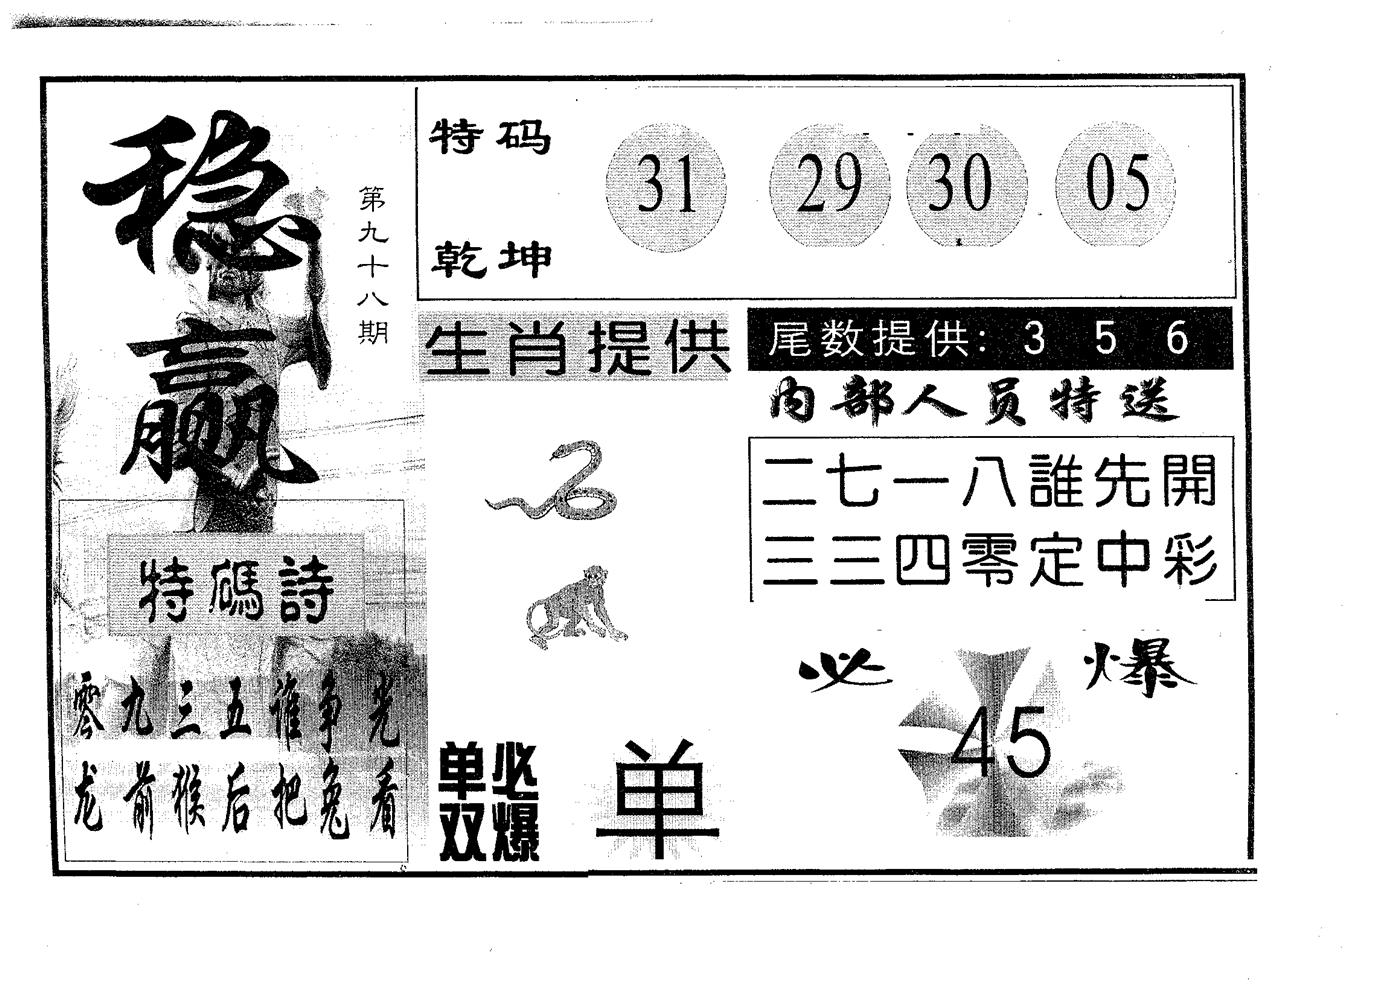 稳赢
第九十八期
特码
乾坤
31 29 30 05
生肖提供
尾数提供: 3 5 6
内部人员特送
二七一八誰先開
三三四零定中彩
特碼詩
零九三五谁争光
龙前猴后把兔看
必爆
45
单双
必爆
单